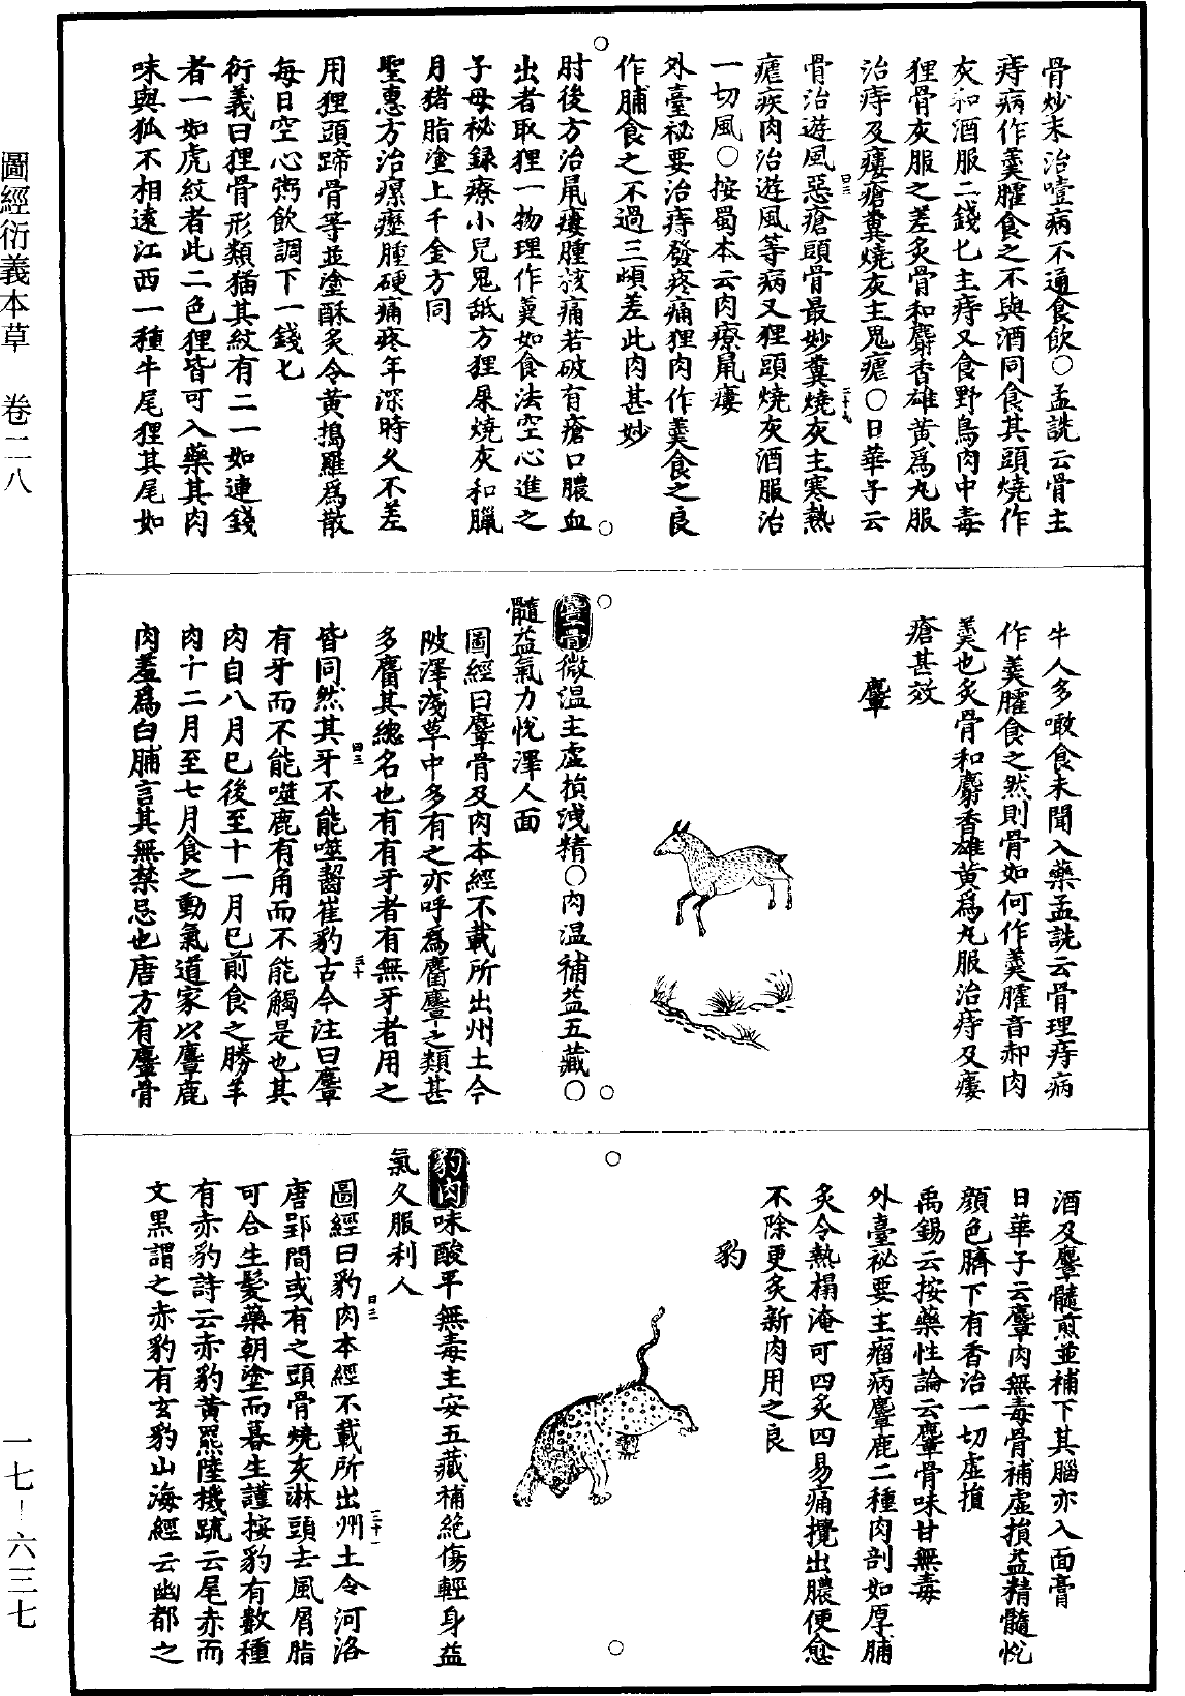 骨炒末治噎病不通食飲○孟詵云骨主
痔病作羹臛食之不與酒同食其頭燒作
灰和酒服二錢匕主痔又食野鳥肉中毒
狸骨灰服之差炙骨和麝香雄黃為丸服
治痔及瘻瘡糞燒灰主鬼瘧○日華子云
骨治遊風惡瘡頭骨最妙糞燒灰主寒熱
瘧疾肉治遊風等病又狸頭燒灰酒服治
一切風○按蜀本云肉療鼠瘻
外臺祕要治痔發疼痛狸肉作羹食之良
作脯食之不過三頓差此肉甚妙
肘後方治鼠瘻腫核痛若破有瘡口膿血
出者取狸一物理作羹如食法空心進之
子母祕録療小兒鬼舐方狸屎燒灰和臘
月猪脂塗上千金方同
聖惠方治瘰癧腫硬痛疼年深時久不差
用狸頭蹄骨等並塗酥炙令黃搗羅為散
每日空心粥飲調下一錢匕
衍義曰狸骨形類猫其紋有二一如連錢
者一如虎紋者此二色狸皆可入藥其肉
味與狐不相遠江西一種牛尾狸其尾如
牛人多噉食未聞入藥孟詵云骨理痔病
作羹臛食之然則骨如何作羹臛音郝肉
羹也炙骨和麝香雄黃為丸服治痔及瘻
瘡甚效
麞
麞骨微溫主虛損洩精○肉溫補益五藏○
髓益氣力悅澤人面
圖經曰麞骨及肉本經不載所出州土今
陂澤淺草中多有之亦呼為麕麞之類甚
多麕其總名也有有牙者有無牙者用之
皆同然其牙不能噬齧崔豹古今注曰麞
有牙而不能噬鹿有角而不能觸是也其
肉自八月已後至十一月已前食之勝羊
肉十二月至七月食之動氣道家以麞鹿
肉羞為白脯言其無禁忌也唐方有麞骨
酒及麞髓煎並補下其腦亦入面膏
日華子云麞肉無毒骨補虛損益精髓悅
顏色臍下有香治一切虛損
禹錫云按藥性論云麞骨味甘無毒
外臺祕要主瘤病麞鹿二種肉剖如厚脯
炙令熱搨淹可四炙四易痛攪出膿便愈
不除更炙新肉用之良
豹
豹肉味酸平無毒主安五藏補絕傷輕身益
氣久服利人
圖經曰豹肉本經不載所出州土今河洛
唐郢間或有之頭骨燒灰淋頭去風屑脂
可合生髮藥朝塗而暮生謹按豹有數種
有赤豹詩云赤豹黃羆陸機疏云尾赤而
文黑謂之赤豹有玄豹山海經云幽都之
圖經衍義本草　卷二八
一七-六三七